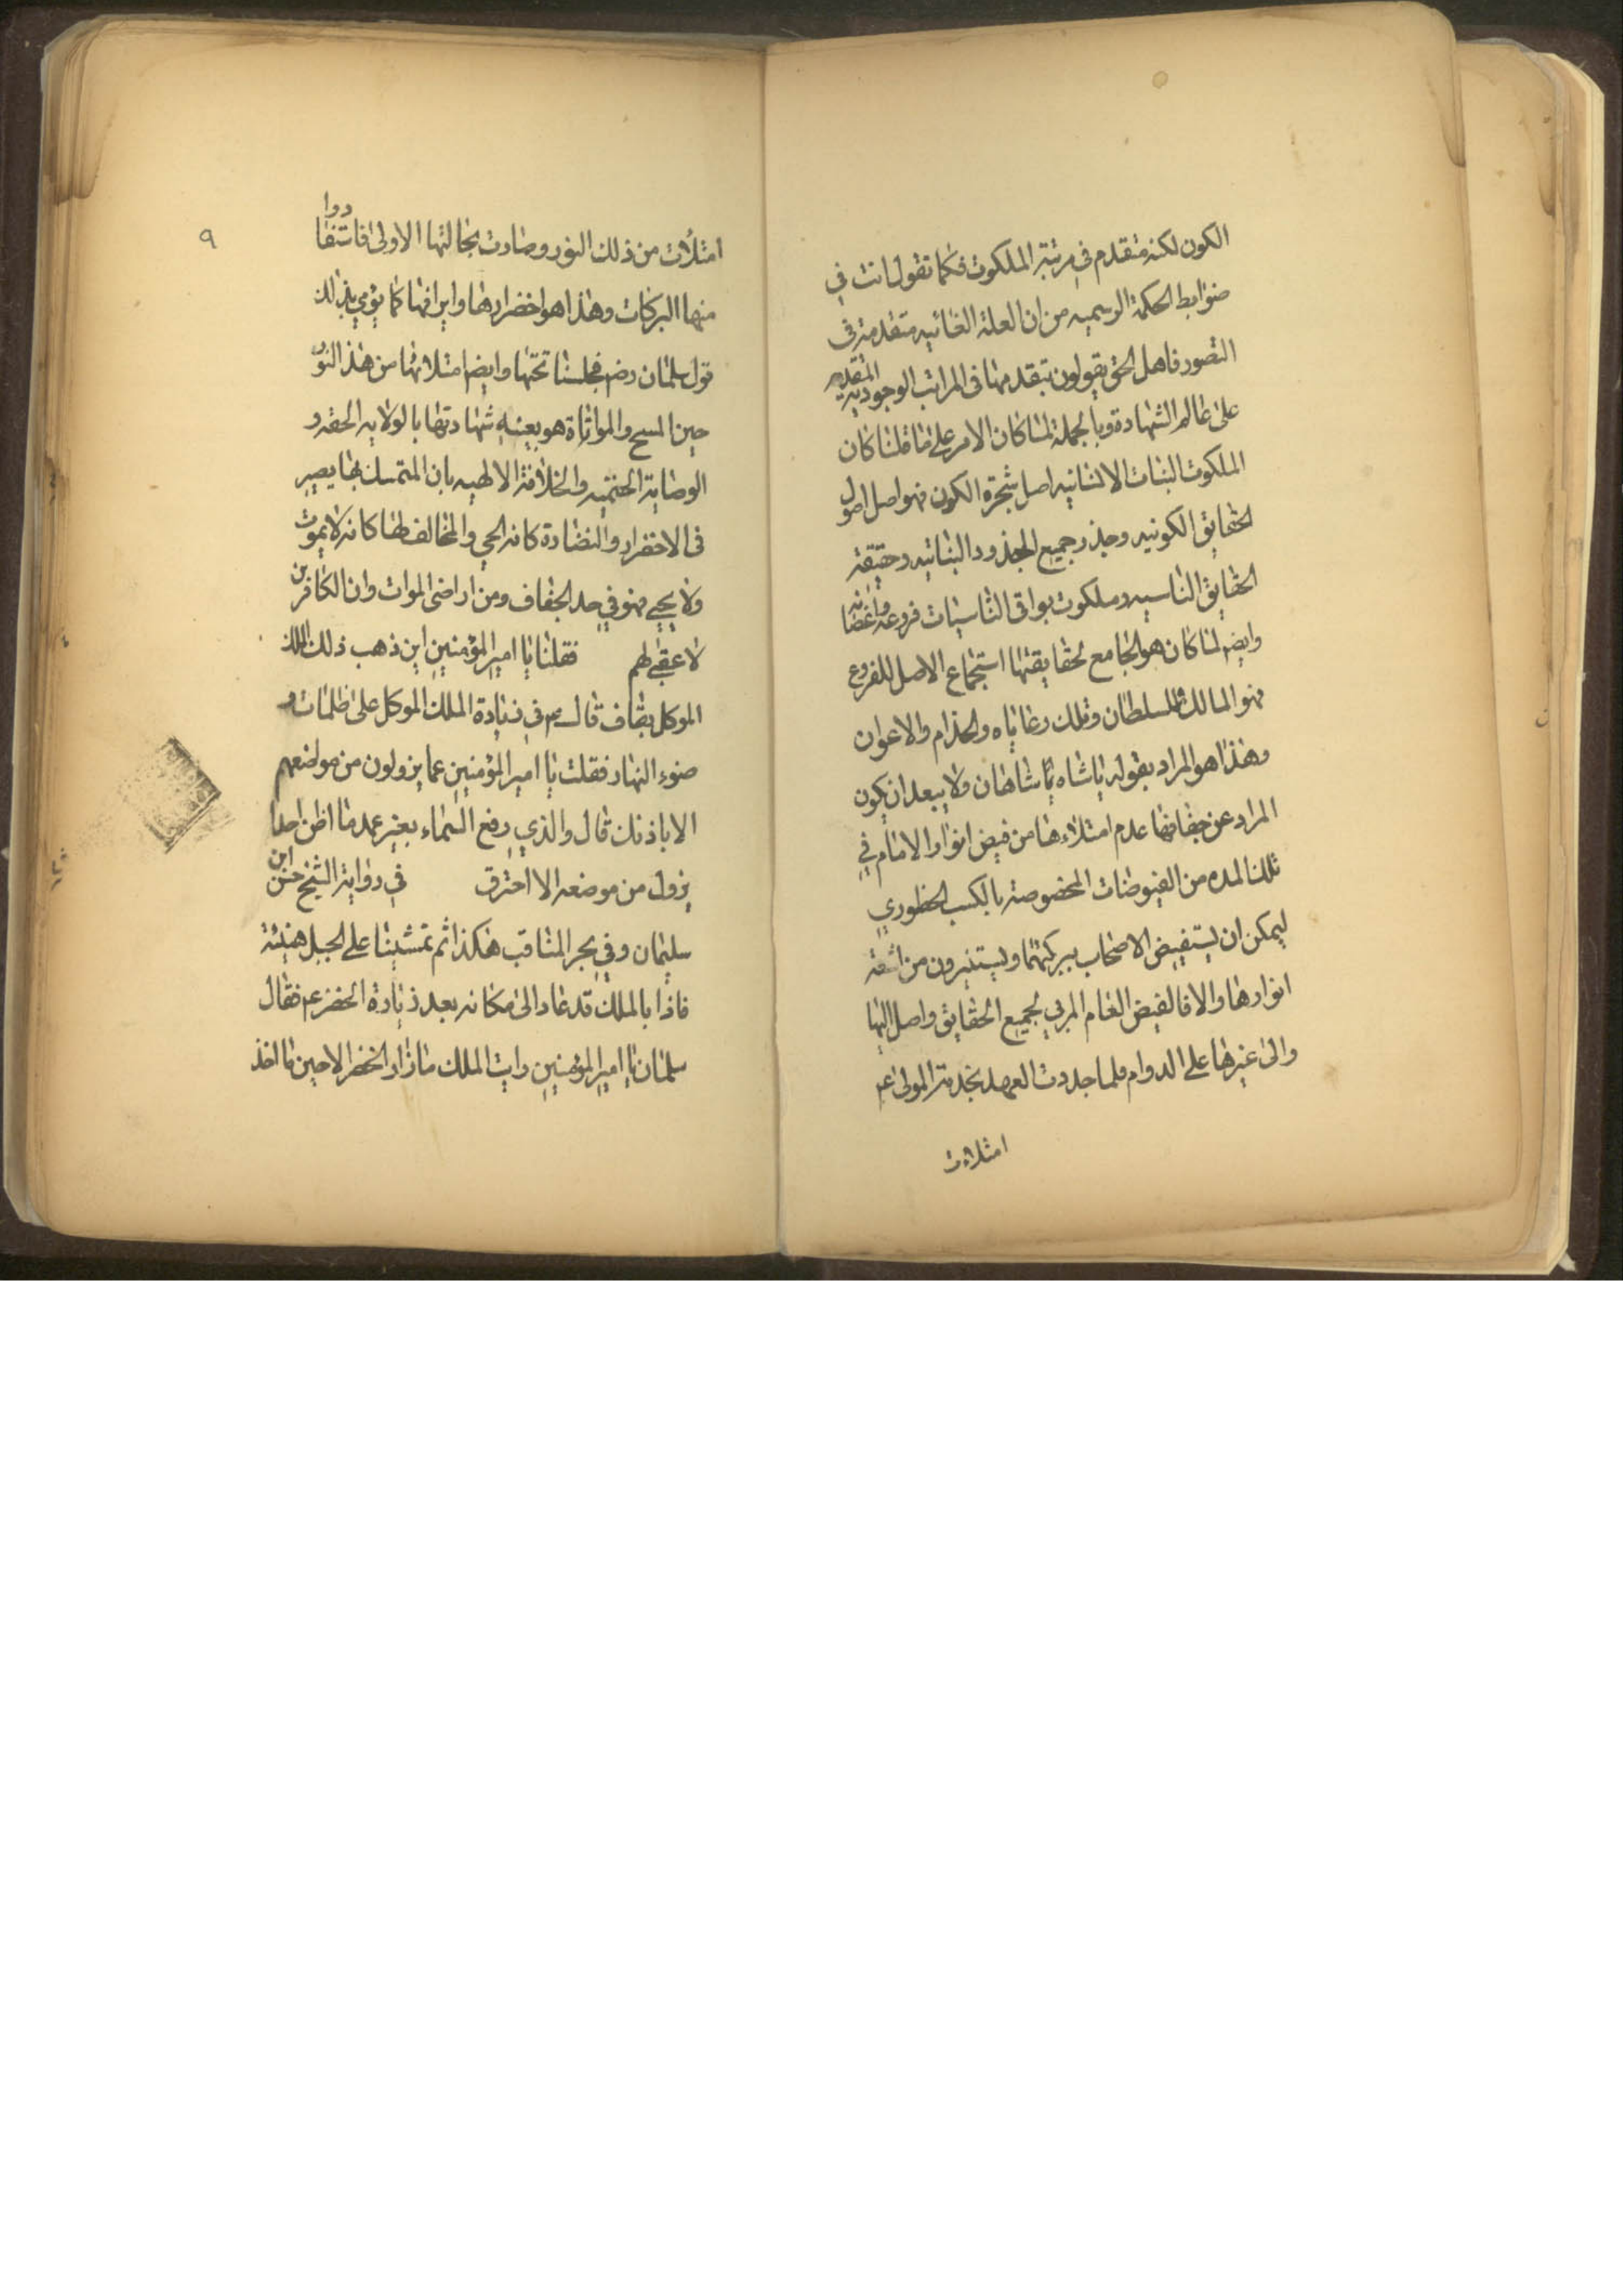 الكون لكنه متقدم في مرتبة الملكوت فكما تقول انت في
ضوابط الحكمة الرسميه من ان العلة الغائيه متقدمة في
التصور فاهل الحق يقولون بتقدمها في المراتب الوجوديه المتقدمه
على عالم الشهادة وبالجملة لما كان الامر على ما قلنا كان
الملكوت النبات الانسانيه اصل شجرة الكون فهو اصل اصول
الحقايق الكونيه وجذر جميع الجذور النباتيه وحقيقة
الحقايق الناسيه وملكوت بواقى الناسيات فروعه واغصانه
وايضم لما كان هو الجامع لحقايقتها استجماع الاصل للفروع
فهو المالك والسلطان وتلك رعاياه والخدام والاعوان
وهذا هو المراد بقوله ياشاه ياشاهان ولا يبعد ان يكون
المراد عن جفافها عدم امتلاءها من فيض انوار الامام في
تلك المده من الفيوضات المخصوصة بالكسب الحظوري
ليمكن ان يستفيض الاصحاب ببركتهما ويستنيرون من اشعة
انوارها والا فالفيض العام المربي لجميع الحقايق واصل اليها
والى غيرها على الدوام فلما جددت العهد بخدمة المولى عم
امتلاءت
٩
امتلأت من ذلك النور وصارت بحالتها الاولى فاستفادوا
منها البركات وهذا هو اخضرارها وايراقها كما يؤمي بذلك
قول سلمان رضم فجلسنا تحتها وايضم امتلائها من هذ النور
حين المسح والمواتاة هو بعينه شهادتها بالولايه الحقه و
الوصاية الحتميه والخلافة الالهيه بان المتمسك بها يصير
فى الاخضرار والنضادة كانه الحي والمخالف لها كانه لا يموت
ولا يحيى فهو في حد الجفاف ومن اراضى الموات وان الكافرين
لا عقبى لهم فقلنا يا امير المؤمنين اين ذهب ذلك الملك
الموكل بقاف قال عم في زيادة الملك الموكل على ظلمات و
ضوء النهار فقلت يا امير المؤمنين عما يزولون من مواضعهم
الا باذنك قال والذي رفع السماء بغير عمد ما اظن احدا
يزول من موضعه الا احترق في رواية الشيخ حسن ابن
سليمان وفي بحر المناقب هكذا ثم تمشينا على الجبل هنيئة
فاذا بالملك قد عاد الى مكانه بعد زيادة الخضر عم فقال
سلمان يا امير المؤمنين رايت الملك ما زار الخضر الا حين ما اخذ